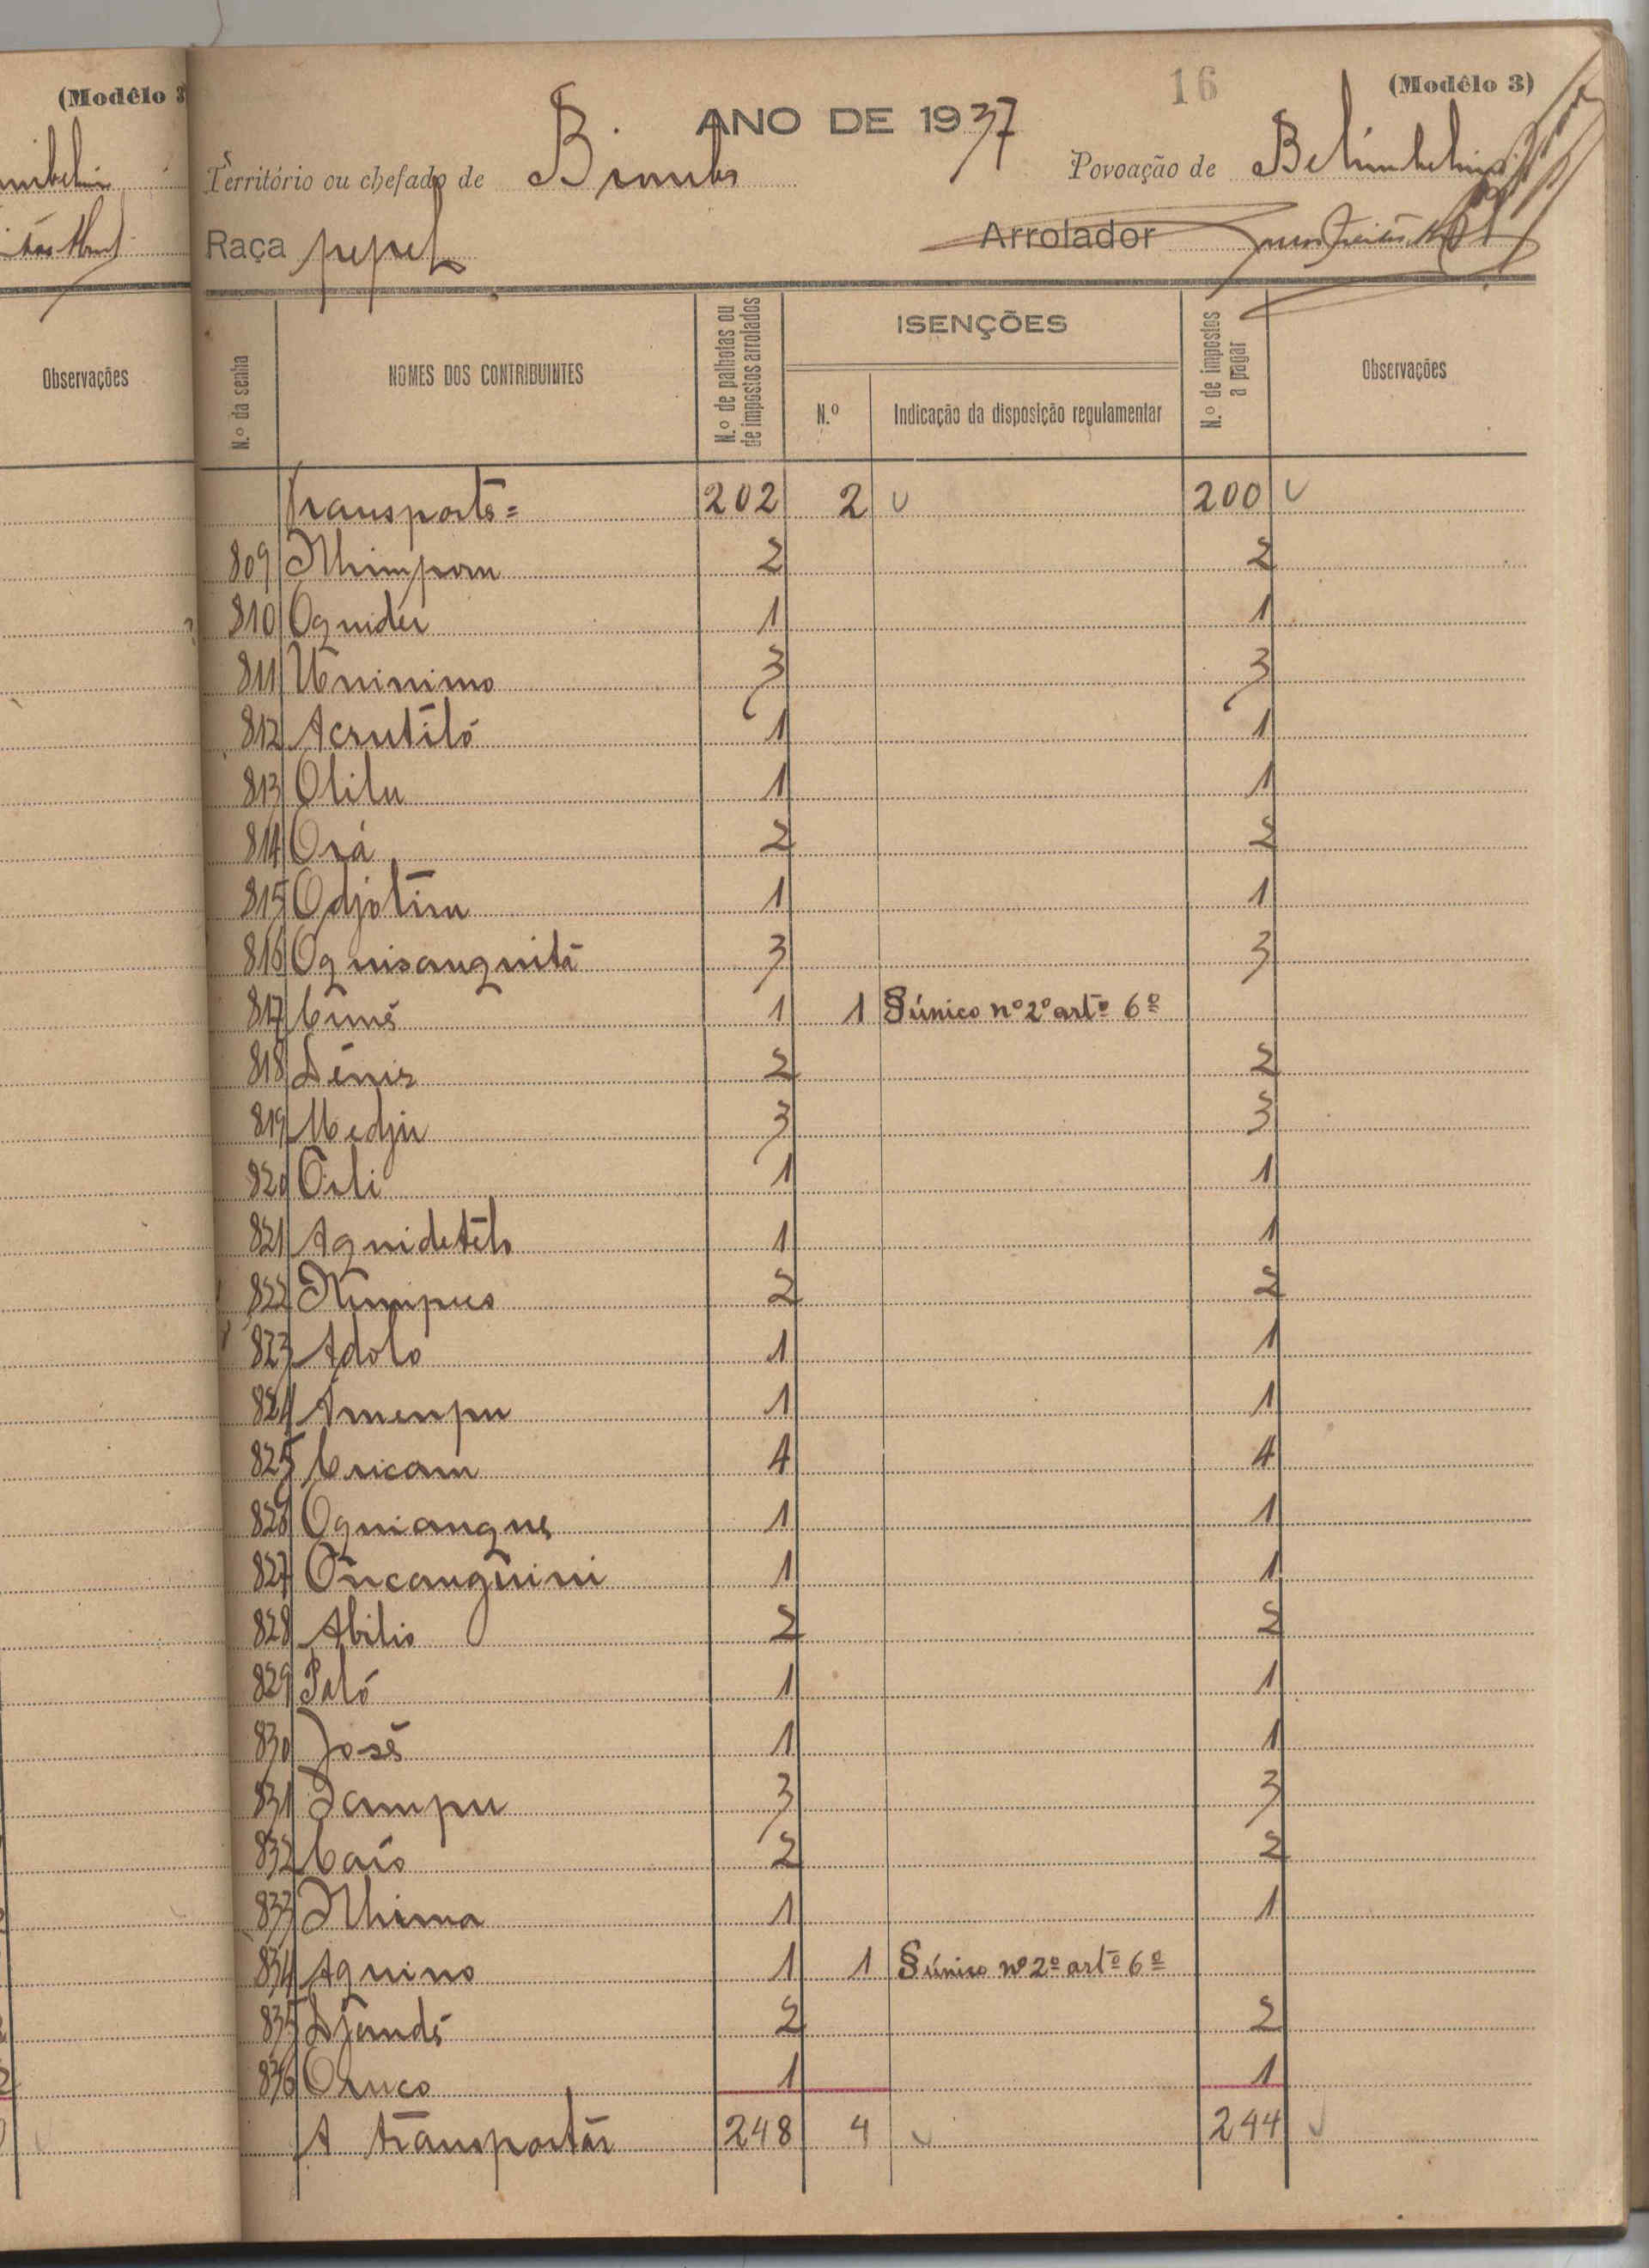 (Modêlo 3
Observações
16
(Modêlo 3)
ANO DE 1937
Território ou chefado de Biombo
Povoação de
Raça pepel
Arrolador
N.º da senha
NOMES DOS CONTRIBUINTES
N.º de palhotas ou de impostos arrolados
ISENÇÕES
N.º
Indicação da disposição regulamentar
N.º de impostos a pagar
Observações
Transporte = 202 2 200
809 Nhimpom 2 2
810 Oquider 1 1
811 Uninimo 3 3
812 Acrutiló 1 1
813 Olilu 1 1
814 Orá 2 2
815 Odjotiru 1 1
816 Oquisanquitá 3 3
817 1 1 § único nº 2º artº 6º
818 Dénis 2 2
819 3 3
820 1 1
821 1 1
822 2 2
823 Adolo 1 1
824 Amenpu 1 1
825 4 4
826 Oquiangue 1 1
827 1 1
828 Abilio 2 2
829 1 1
830 José 1 1
831 3 3
832 Caió 2 2
833 Nhima 1 1
834 Aquino 1 1 § único nº 2º artº 6º
835 Djendé 2 2
836 Oruco 1 1
A transportar 248 4 244